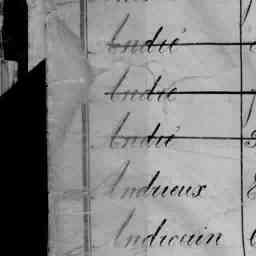 André
André
André
Andrieux
Androuin